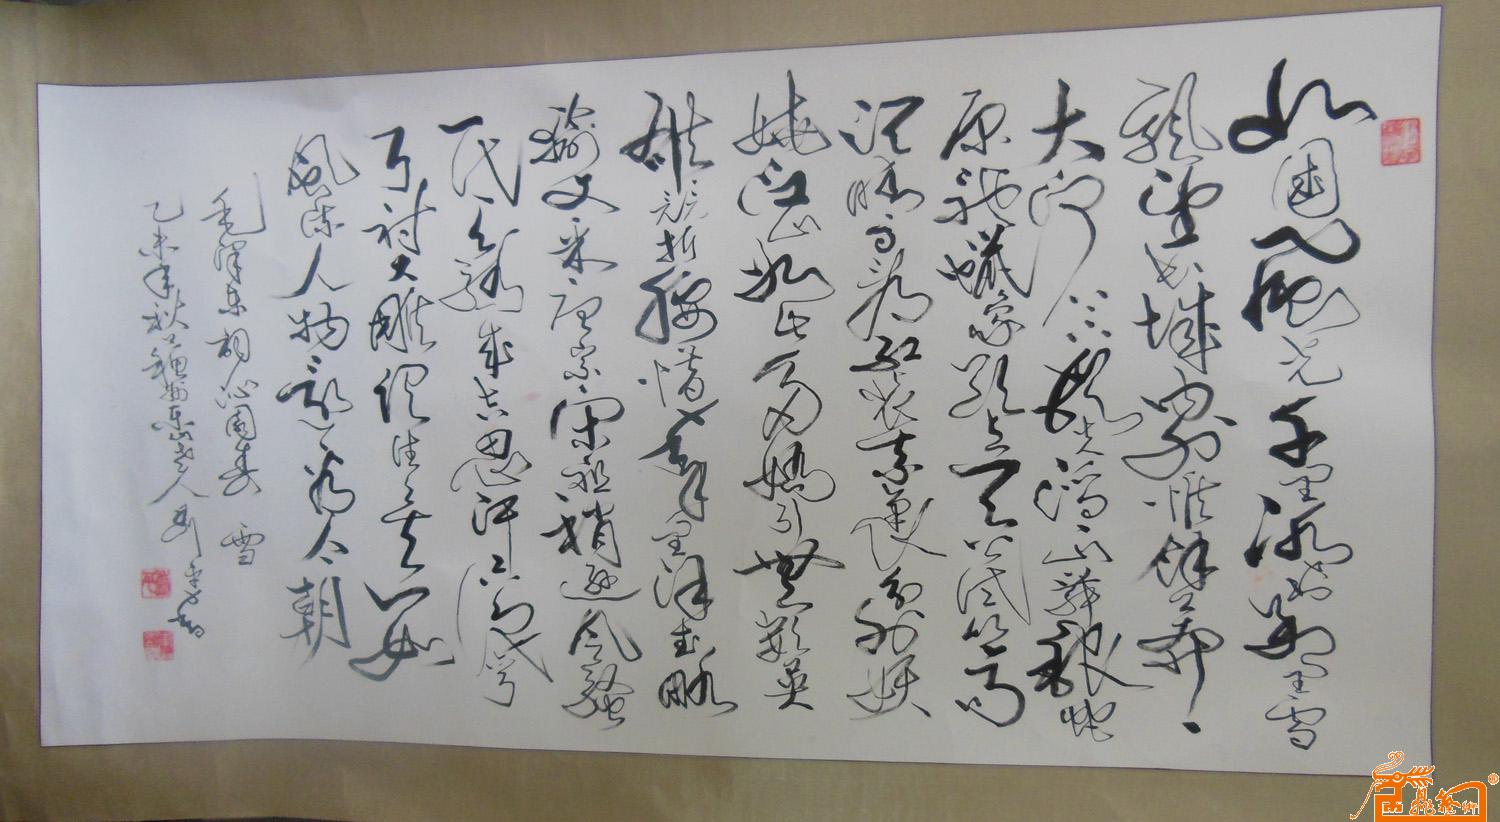 北國風光千里冰封万里雪
飄望长城内外惟餘莽莽
大河上下顿失滔滔山舞银蛇
原驰蠟象欲与天公试比高
须晴日看红装素裹分外妖
娆江山如此多嬌引無数英
雄競折腰惜秦皇汉武略
输文采唐宗宋祖稍逊风骚
一代天骄成吉思汗只识弯
弓射大雕俱往矣数
風流人物还看今朝
毛泽东词沁园春 雪
乙未年秋 东山老人